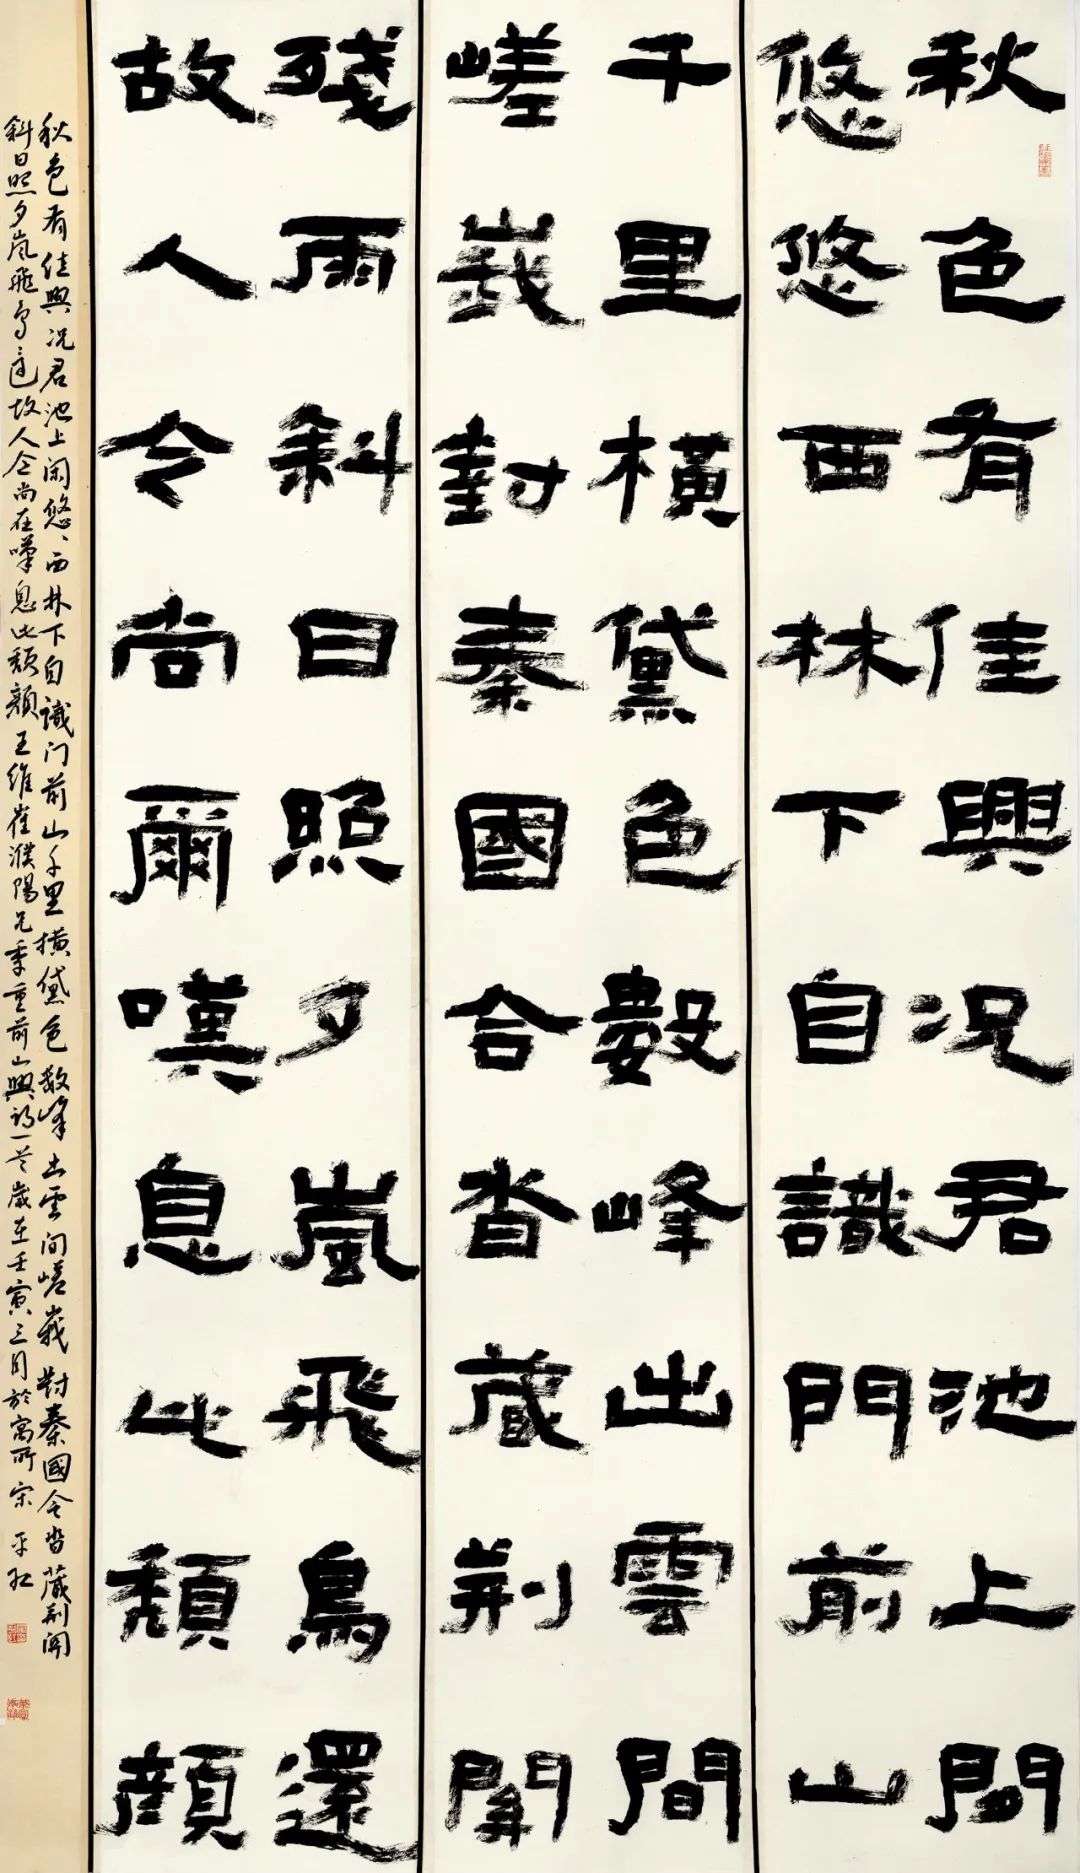 秋色有佳興况君池上閒
悠悠西林下自識門前山
千里橫黛色數峰出雲間
嵯峩對秦國合沓蔵荆關
殘雨斜日照夕嵐飛鳥還
故人今尚爾嘆息此頹顏
秋色有佳興况君池上闲悠、西林下自識门前山千里横黛色数峰出雲间嵯峩對秦國合沓蔵荆関
斜日照夕嵐飛鳥還故人今尚在嘆息此頹顏 王維崔濮陽兄季重前山興詩一首歲在壬寅三月於寓所宋平